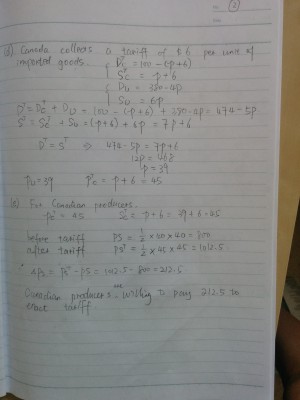 (2)
(d). Canada collects a tariff of $6 per unit of
imported goods.
D_C^T = 100 - (p+6)
S_C^T = p+6
D_U = 380-4p
S_U = 6p
D^T = D_C^T + D_U = 100 - (p+6) + 380-4p = 474-5p
S^T = S_C^T + S_U = (p+6) + 6p = 7p+6
D^T = S^T ⇒ 474-5p = 7p+6
12p = 468
p = 39
P_U = 39 P_C^T = p+6 = 45
(e). For Canadian producers.
P_C^T = 45 S_C^T = p+6 = 39+6=45
before tariff PS = 1/2 × 40 × 40 = 800
after tariff PS^T = 1/2 × 45 × 45 = 1012.5
∴ ΔPS = PS^T - PS = 1012.5 - 800 = 212.5
Canadian producers are willing to pay 212.5 to
enact tariff